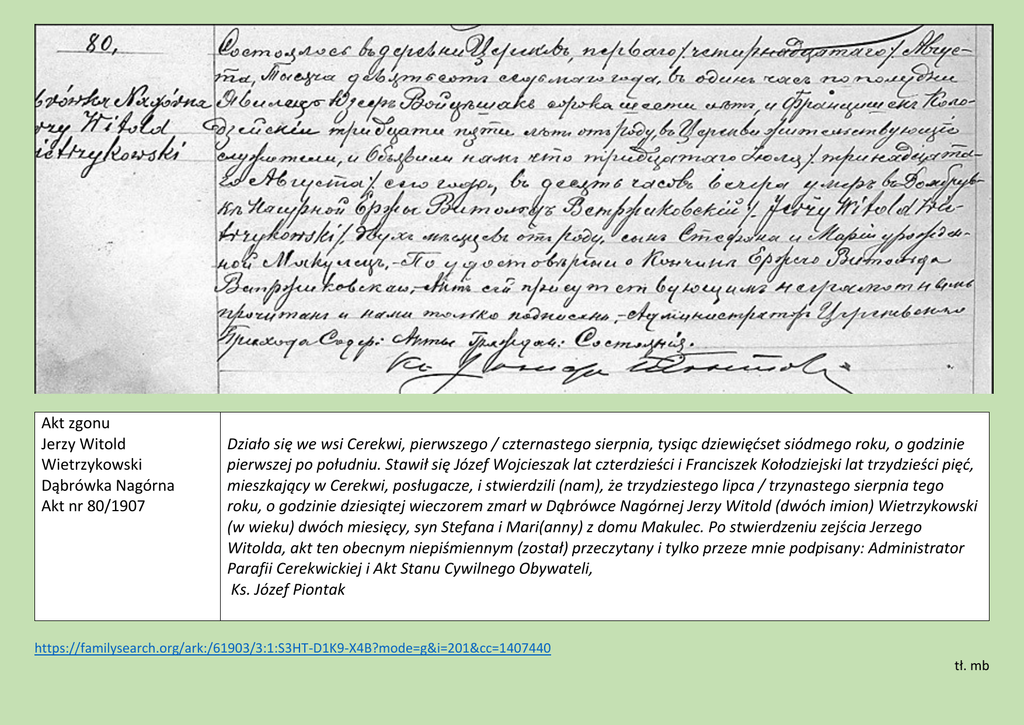 80,
Nagórna
Witold
ietrzykowski
Состоялось въ деревни Церквѣ, перваго /четырнадцатаго/ Авгус-
та, Тысяча девятьсотъ седьмаго года, въ одинъ часъ пополудни
Явились Юзефъ Войцѣшакъ сорока шести лѣтъ, и Францишекъ Коло-
дзейскій тридцати пяти лѣтъ отъ роду, въ Церкви жительствующіе
служители, и Объявили намъ что тридцатаго Іюля / тринадцата-
го Августа / сего года, въ десять часовъ вечера умеръ въ Домбрув-
кѣ Нагурной Ержы Витольдъ Ветржиковскій /Jerzy Witold Wie-
trzykowski/ двухъ мѣсяцевъ отъ роду, сынъ Стефана и Маріи урожден-
ной Макулецъ,- По удостовѣреніи о Кончинѣ Ержего Витольда
Ветржиковскаго,- Актъ сей присутствующимъ неграмотнымъ
прочитанъ и нами только подписанъ,- Администраторъ Церкевскаго
Прихода Содер: Акты Граждан: Состоянія.
Кс.
Akt zgonu
Jerzy Witold
Wietrzykowski
Dąbrówka Nagórna
Akt nr 80/1907
Działo się we wsi Cerekwi, pierwszego / czternastego sierpnia, tysiąc dziewięćset siódmego roku, o godzinie
pierwszej po południu. Stawił się Józef Wojcieszak lat czterdzieści i Franciszek Kołodziejski lat trzydzieści pięć,
mieszkający w Cerekwi, posługacze, i stwierdzili (nam), że trzydziestego lipca / trzynastego sierpnia tego
roku, o godzinie dziesiątej wieczorem zmarł w Dąbrówce Nagórnej Jerzy Witold (dwóch imion) Wietrzykowski
(w wieku) dwóch miesięcy, syn Stefana i Mari(anny) z domu Makulec. Po stwierdzeniu zejścia Jerzego
Witolda, akt ten obecnym niepiśmiennym (został) przeczytany i tylko przeze mnie podpisany: Administrator
Parafii Cerekwickiej i Akt Stanu Cywilnego Obywateli,
Ks. Józef Piontak
https://familysearch.org/ark:/61903/3:1:S3HT-D1K9-X4B?mode=g&i=201&cc=1407440
tł. mb